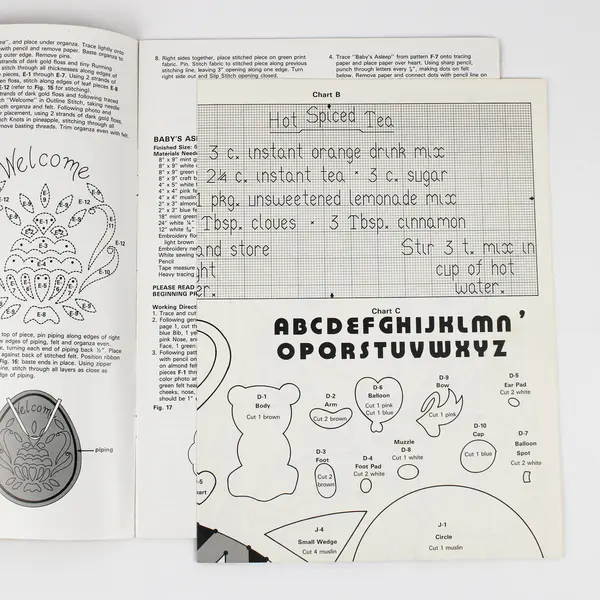 ", and place under organza. Trace lightly onto
with pencil and remove paper. Baste organza to
outer edge. Remove pins.
stitch through all thicknesses along edges of
pieces, E-1 through E-7. Using 2 strands of
floss, stitch along edges of leaf pieces E-8
E-12 (refer to Fig. 15 for stitching).
strands of dark gold floss and following photo
"Welcome" in Outline Stitch, taking needle
both organza and felt. Following photo and
placement, using 2 strands of dark gold floss,
Knots in pineapple, stitching through all
remove basting threads. Trim organza even with felt.
Welcome
E-9
E-12
E-1
E-3
E-5
E-6
E-8
E-9
E-10
11
E-12
top of piece, pin piping along edges of right
edges of piping, felt and organza even.
, turning each end of piping back ½". Place
against back of stitched felt. Position ribbon
Fig. 16; baste ends in place. Using zipper
stitch through all layers as close as
edge of piping.
Welcome
piping
8. Right sides together, place stitched piece on green print
fabric. Pin. Stitch fabric to stitched piece along previous
stitching line, leaving 3" opening along one edge. Turn
right side out and Slip Stitch opening closed.
4. Trace "Baby's Asleep" from pattern F-7 onto tracing
paper and place paper over heart. Using sharp pencil,
punch through letters every ⅛", making dots on felt
below. Remove paper and connect dots with pencil line on
BABY'S AS
Finished Size: 6
Materials Needed
8" x 9" mint g
8" x 9" white
8" x 9" green
8" x 9" craft b
4" x 5" white
4" x 4" pink fe
4" x 4" almond
2" x 3" dark f
2" x 3" blue f
18" mint green
24" white ¼"
12" white
Embroidery flo
light brown
Embroidery nee
White sewing
Pencil
Tape measure
Heavy tracing
PLEASE READ
BEGINNING PR
Working Directi
1. Trace and cut
2. Following gen
page 1, cut th
blue Bib, 1 ye
pink Nose, and
Face, 1 green
3. Following patt
with pencil on
on almond felt
pieces F-1 thr
color photo an
green felt hea
cheeks, nose,
should be 1"
Fig. 17
Chart B
Hot Spiced Tea
3 c. instant orange drink mix
2¼ c. instant tea * 3 c. sugar
1 pkg. unsweetened lemonade mix
Tbsp. cloves * 3 Tbsp. cinnamon
and store
Stir 3 t. mix in
ht
cup of hot
er.
water.
Chart C
ABCDEFGHIJKLMN'
OPQRSTUVWXYZ
D-1
Body
Cut 1 brown
D-2
Arm
Cut 2 brown
D-6
Balloon
Cut 1 pink
Cut 1 blue
D-9
Bow
Cut 1 pink
D-5
Ear Pad
Cut 2 white
D-3
Foot
Cut 2
brown
D-4
Foot Pad
Cut 2 white
Muzzle
D-8
Cut 1 white
D-10
Cap
Cut 1 blue
D-7
Balloon
Spot
Cut 2 white
J-4
Small Wedge
Cut 4 muslin
J-1
Circle
Cut 1 muslin